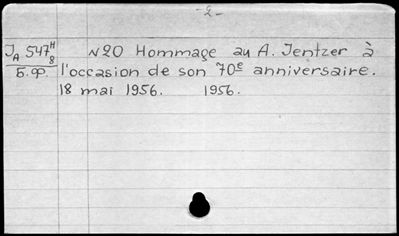 -2-
JA 547 H/8 N20 Hommage au A. Jentzer à
Б.Ф. l'occasion de son 70e anniversaire.
18 mai 1956. 1956.